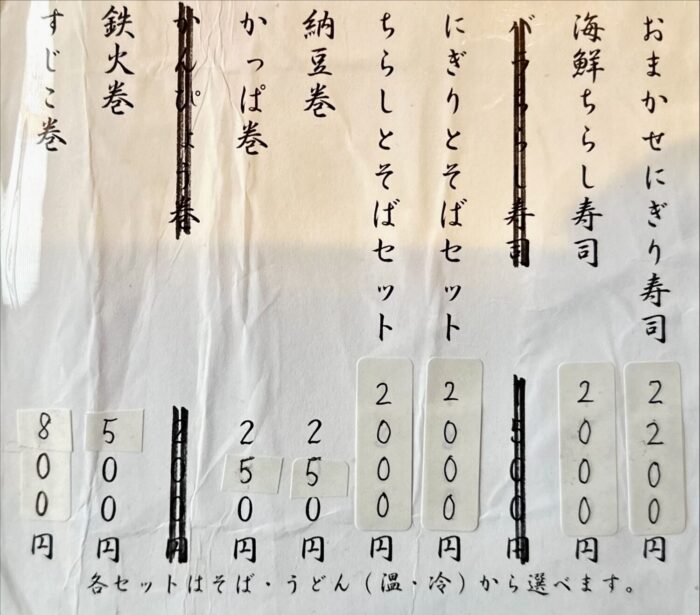 おまかせにぎり寿司 2200円
海鮮ちらし寿司 2000円
バラちらし寿司 500円
にぎりとそばセット 2000円
ちらしとそばセット 2000円
納豆巻 250円
かっぱ巻 250円
かんぴょう巻 200円
鉄火巻 500円
すじこ巻 800円
各セットはそば・うどん(温・冷)から選べます。